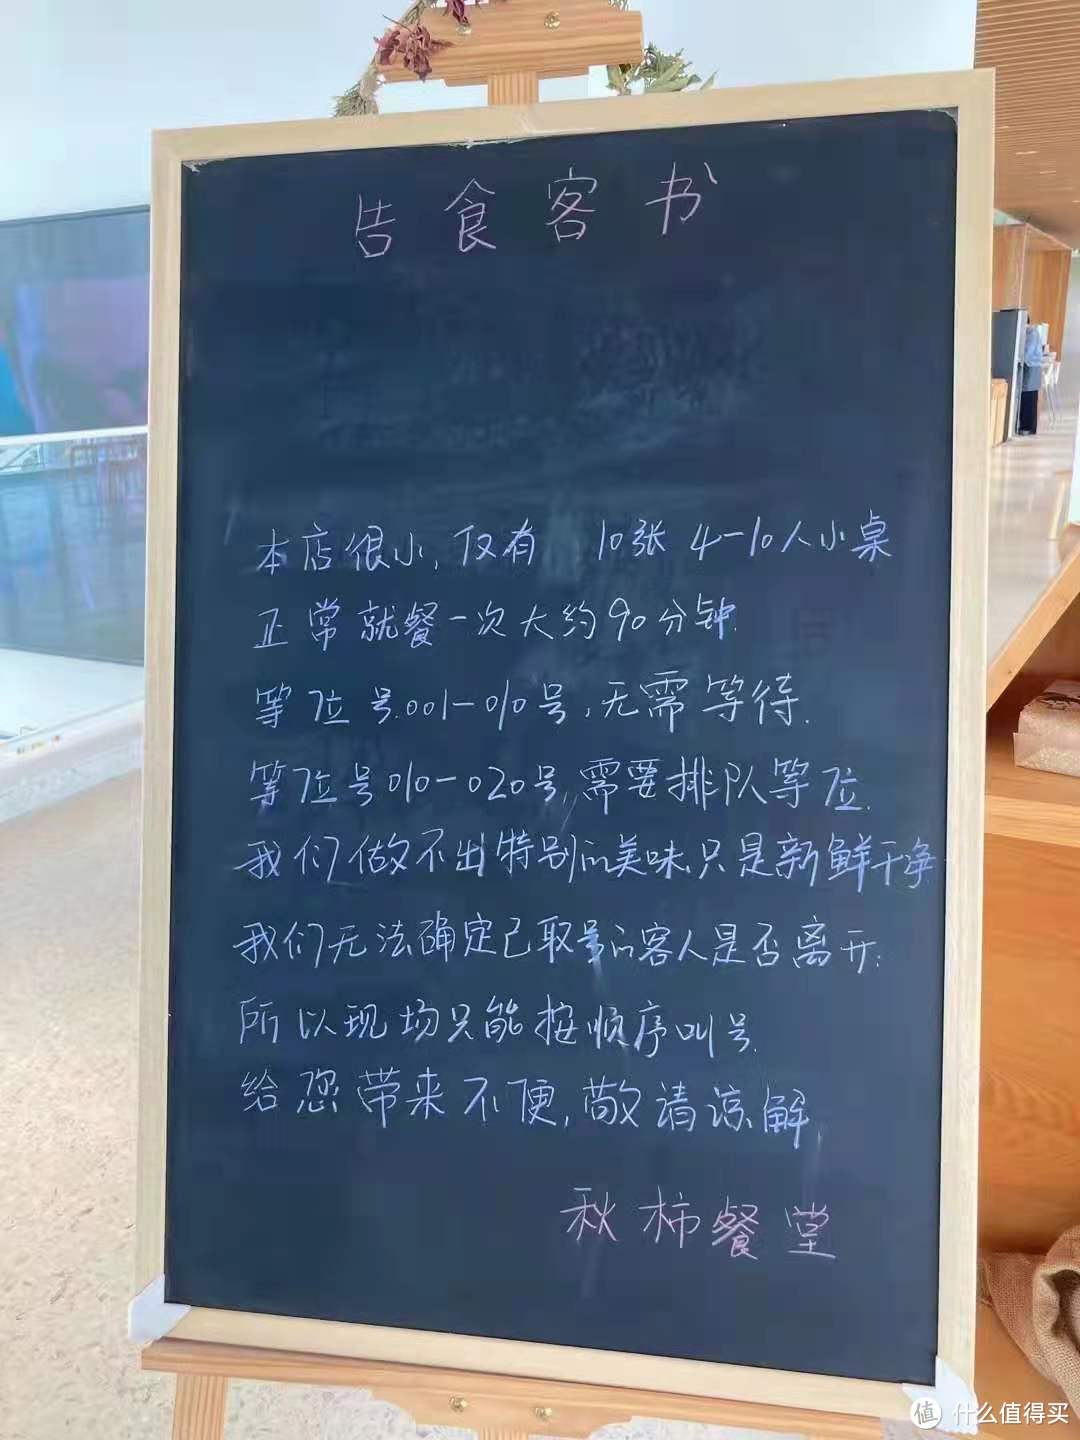 告食客书
本店很小,仅有 10张 4-10人小桌
正常就餐一次大约90分钟.
等位号.001-010号,无需等待.
等位号010-020号,需要排队等位.
我们做不出特别的美味.只是新鲜干净
我们无法确定已取号的客人是否离开.
所以现场只能按顺序叫号.
给您带来不便,敬请谅解.
秋柿餐堂
值 什么值得买